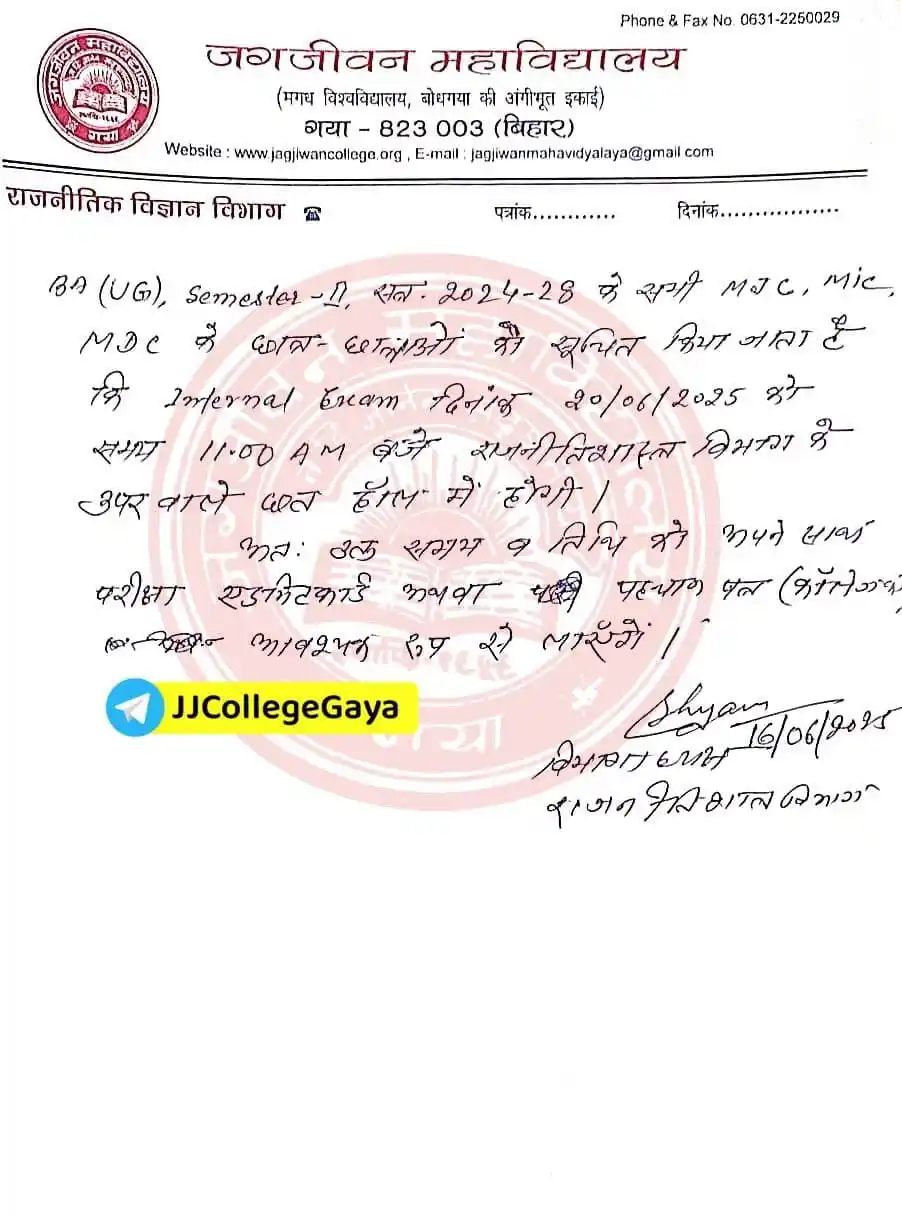 Phone & Fax No. 0631-2250029
जगजीवन महाविद्यालय
(मगध विश्वविद्यालय, बोधगया की अंगीभूत इकाई)
गया - 823 003 (बिहार)
Website : www.jagjiwancollege.org , E-mail : jagjiwanmahavidyalaya@gmail.com
राजनीतिक विज्ञान विभाग ☎ पत्रांक............ दिनांक.................
BA (UG), Semester-II, सत्र. 2024-28 के सभी MJC, MIC,
MDC के छात्र-छात्राओं को सूचित किया जाता है
कि Internal Exam दिनांक 20/06/2025 को
समय 11.00 AM बजे राजनीतिशास्त्र विभाग के
उपर वाले छत हॉल में होगी।
अतः उक्त समय व तिथि को अपने साथ
परीक्षा एडमिटकार्ड अथवा पहचान पत्र (कॉलेज का)
आवश्यक रूप से लाएँगें।
JJCollegeGaya
Shyam
16/06/2025
विभागाध्यक्ष
राजनीतिशास्त्र विभाग